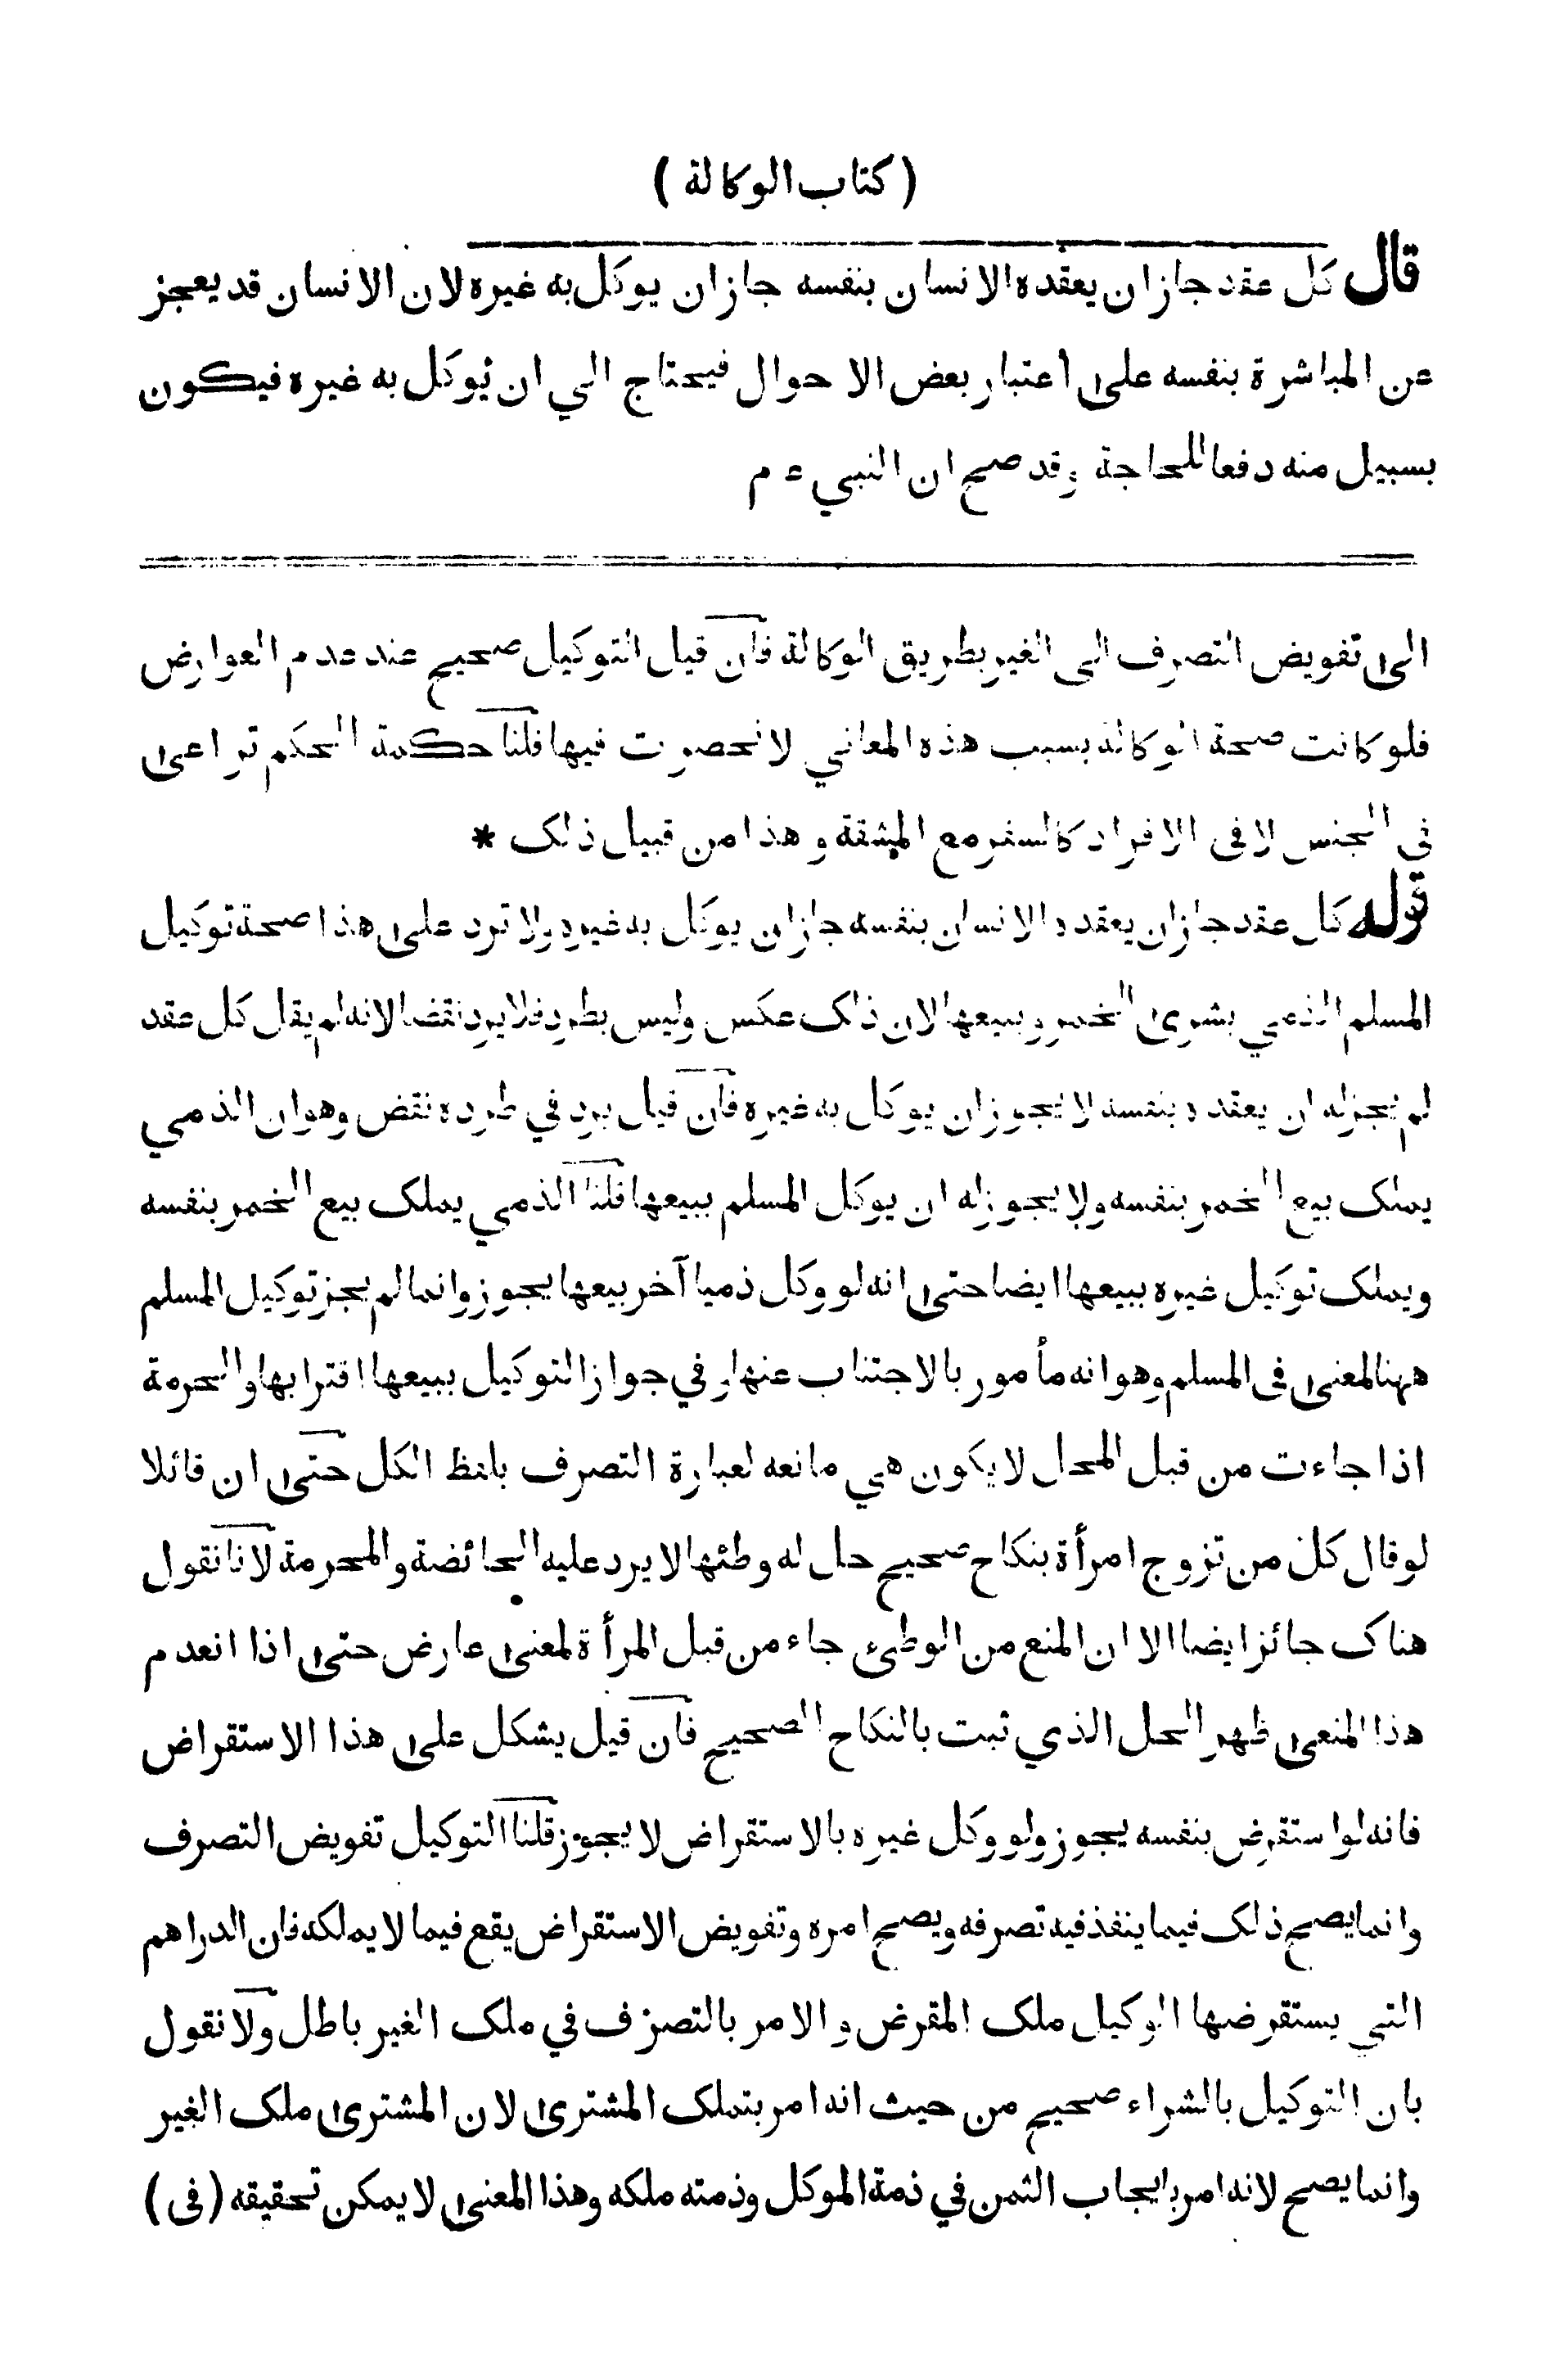 ( كتاب الوكالة )
قال كل عقد جاز ان يعقده الانسان بنفسه جاز ان يوكل به غيره لان الانسان قد يعجز
عن المباشرة بنفسه على اعتبار بعض الاحوال فيحتاج الي ان يُوكل به غيره فيكون
بسبيل منه دفعا للحاجة وقد صح ان النبي ء م
الى تفويض التصرف الى الغير بطريق الوكالة فان قيل التوكيل صحيح عند عدم العوارض
فلو كانت صحة الوكالة بسبب هذه المعاني لانحصرت فيها قلنا حكمة الحكم تراعى
في الجنس لا في الافراد كالسفر مع المشقة و هذا من قبيل ذلك *
قوله كل عقد جاز ان يعقده الانسان بنفسه جاز ان يوكل به غيره ولا ترد على هذا صحة توكيل
المسلم الذمي بشرى الخمر وبيعها لان ذلك عكس وليس بطرد فلا يرد نقضا لانه لم يقل كل عقد
لم يجز له ان يعقده بنفسه لا يجوز ان يوكل به غيره فان قيل يرد في طرده نقض وهو ان الذمي
يملك بيع الخمر بنفسه ولا يجوز له ان يوكل المسلم ببيعها قلنا الذمي يملك بيع الخمر بنفسه
ويملك توكيل غيره ببيعها ايضا حتى انه لو وكل ذميا آخر بيعها يجوز وانما لم يجز توكيل المسلم
ههنا لمعنى فى المسلم وهو انه مأمور بالاجتناب عنها وفي جواز التوكيل ببيعها اقترابها والحرمة
اذا جاءت من قبل المحل لا يكون هي مانعه لعبارة التصرف بلفظ الكل حتى ان قائلا
لو قال كل من تزوج امرأة بنكاح صحيح حل له وطئها لا يرد عليه الحائضة والمحرمة لانا نقول
هناك جائز ايضا الا ان المنع من الوطىء جاء من قبل المرأة لمعنى عارض حتى اذا انعدم
هذا المنعى ظهر الحل الذي ثبت بالنكاح الصحيح فان قيل يشكل على هذا الاستقراض
فانه لو استقرض بنفسه يجوز ولو وكل غيره بالاستقراض لا يجوز قلنا التوكيل تفويض التصرف
وانما يصح ذلك فيما ينفذ فيه تصرفه ويصح امره وتفويض الاستقراض يقع فيما لا يملكه فان الدراهم
التي يستقرضها الوكيل ملك المقرض و الامر بالتصرف في ملك الغير باطل ولا نقول
بان التوكيل بالشراء صحيح من حيث انه امر بتملك المشترى لان المشترى ملك الغير
وانما يصح لانه امر بايجاب الثمن في ذمة الموكل وذمته ملكه وهذا المعنى لا يمكن تحقيقه ( فى )